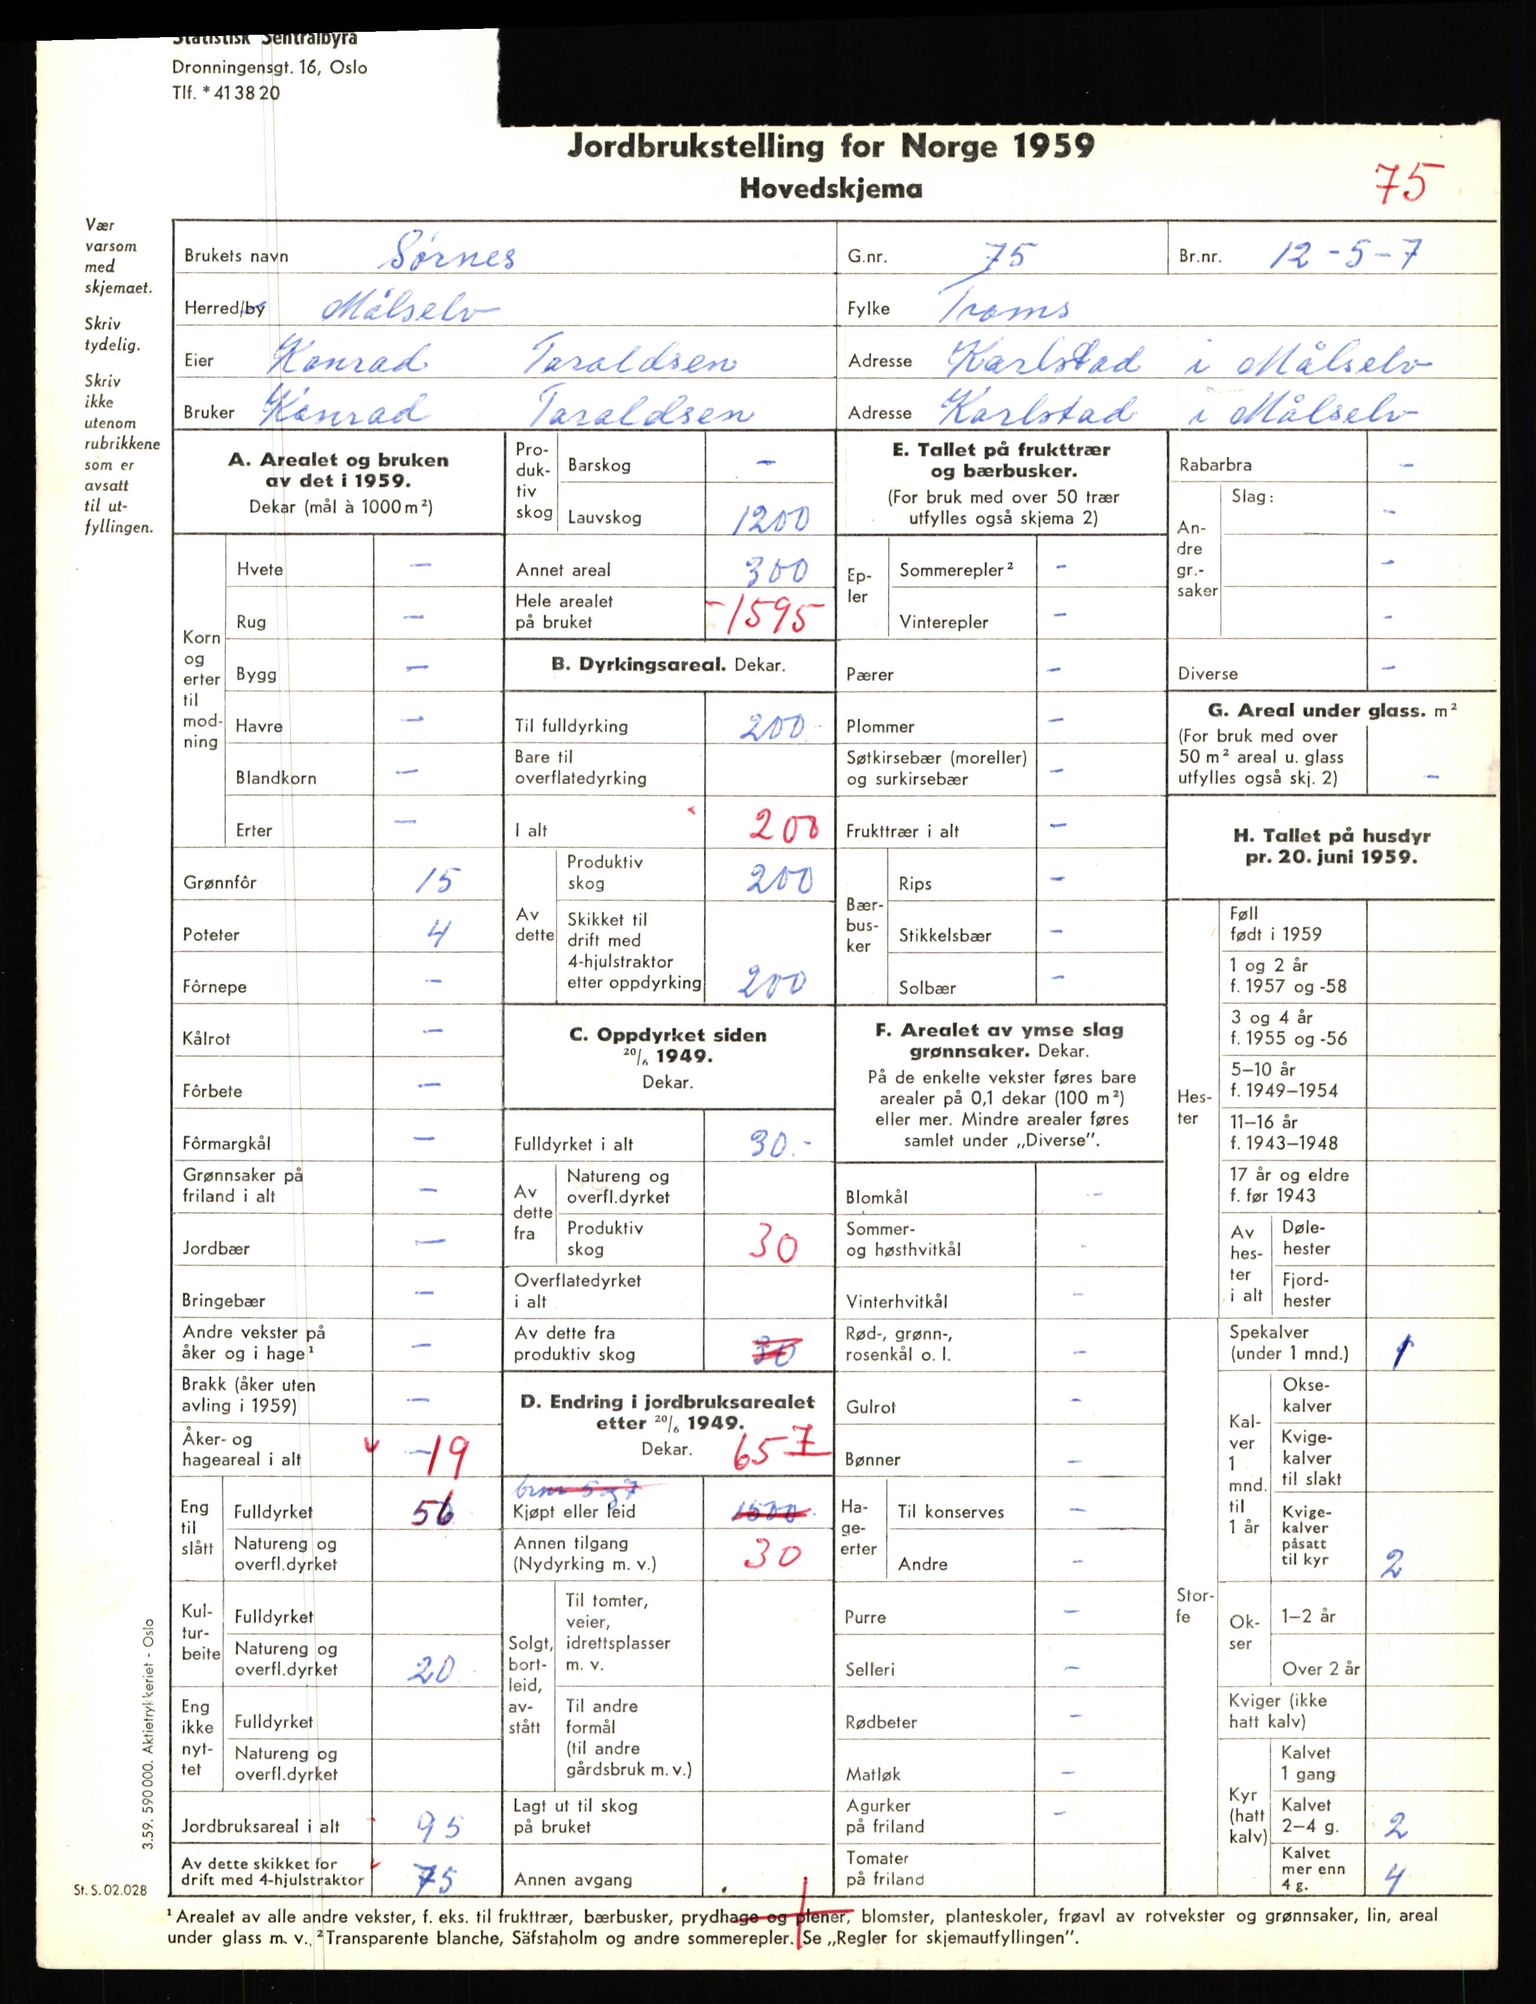 Statistisk Sentralbyrå
Dronningensgt. 16, Oslo
Tlf. * 41 38 20
Jordbrukstelling for Norge 1959
Hovedskjema
75
Vær
varsom
med
skjemaet.
Skriv
tydelig.
Skriv
ikke
utenom
rubrikkene
som er
avsatt
til ut-
fyllingen.
Brukets navn Sørnes G.nr. 75 Br.nr. 12-5-7
Herred/by Målselv Fylke Troms
Eier Konrad Taraldsen Adresse Karlstad i Målselv
Bruker Konrad Taraldsen Adresse Karlstad i Målselv
A. Arealet og bruken
av det i 1959.
Dekar (mål à 1000 m²)
Korn
og
erter
til
mod-
ning
Hvete –
Rug –
Bygg –
Havre –
Blandkorn –
Erter –
Grønnfôr 15
Poteter 4
Fôrnepe –
Kålrot –
Fôrbete –
Fôrmargkål –
Grønnsaker på
friland i alt –
Jordbær –
Bringebær –
Andre vekster på
åker og i hage¹ –
Brakk (åker uten
avling i 1959) –
Åker- og
hageareal i alt 19
Eng
til
slått
Fulldyrket 56
Natureng og
overfl.dyrket
Kul-
tur-
beite
Fulldyrket
Natureng og
overfl.dyrket 20
Eng
ikke
nyt-
tet
Fulldyrket
Natureng og
overfl.dyrket
Jordbruksareal i alt 95
Av dette skikket for
drift med 4-hjulstraktor 75
Pro-
duk-
tiv
skog
Barskog –
Lauvskog 1200
Annet areal 300
Hele arealet
på bruket 1595
B. Dyrkingsareal. Dekar.
Til fulldyrking 200
Bare til
overflatedyrking
I alt 200
Av
dette
Produktiv
skog 200
Skikket til
drift med
4-hjulstraktor
etter oppdyrking 200
C. Oppdyrket siden
20/6 1949.
Dekar.
Fulldyrket i alt 30.-
Av
dette
fra
Natureng og
overfl.dyrket
Produktiv
skog 30
Overflatedyrket
i alt
Av dette fra
produktiv skog 30
D. Endring i jordbruksarealet
etter 20/6 1949.
Dekar. 657
brnr 5 og 7
Kjøpt eller leid 1500
Annen tilgang
(Nydyrking m. v.) 30
Solgt,
bort-
leid,
av-
stått
Til tomter,
veier,
idrettsplasser
m. v.
Til andre
formål
(til andre
gårdsbruk m. v.)
Lagt ut til skog
på bruket
Annen avgang
E. Tallet på frukttrær
og bærbusker.
(For bruk med over 50 trær
utfylles også skjema 2)
Ep-
ler
Sommerepler² –
Vinterepler –
Pærer –
Plommer –
Søtkirsebær (moreller)
og surkirsebær –
Frukttrær i alt –
Bær-
bus-
ker
Rips –
Stikkelsbær –
Solbær –
F. Arealet av ymse slag
grønnsaker. Dekar.
På de enkelte vekster føres bare
arealer på 0,1 dekar (100 m²)
eller mer. Mindre arealer føres
samlet under „Diverse”.
Blomkål –
Sommer-
og høsthvitkål –
Vinterhvitkål –
Rød-, grønn-,
rosenkål o. l. –
Gulrot –
Bønner –
Ha-
ge-
erter
Til konserves –
Andre –
Purre –
Selleri –
Rødbeter –
Matløk –
Agurker
på friland –
Tomater
på friland
Rabarbra –
An-
dre
gr.-
saker
Slag: –
–
–
Diverse –
G. Areal under glass. m²
(For bruk med over
50 m² areal u. glass
utfylles også skj. 2) –
H. Tallet på husdyr
pr. 20. juni 1959.
Hes-
ter
Føll
født i 1959
1 og 2 år
f. 1957 og -58
3 og 4 år
f. 1955 og -56
5–10 år
f. 1949–1954
11–16 år
f. 1943–1948
17 år og eldre
f. før 1943
Av
hes-
ter
i alt
Døle-
hester
Fjord-
hester
Stor-
fe
Spekalver
(under 1 mnd.) 1
Kal-
ver
1
mnd.
til
1 år
Okse-
kalver
Kvige-
kalver
til slakt
Kvige-
kalver
påsatt
til kyr 2
Ok-
ser
1–2 år
Over 2 år
Kviger (ikke
hatt kalv)
Kyr
(hatt
kalv)
Kalvet
1 gang
Kalvet
2–4 g. 2
Kalvet
mer enn
4 g. 4
3.59. 590 000. Aktietrykkeriet - Oslo
St. S. 02.028
¹ Arealet av alle andre vekster, f. eks. til frukttrær, bærbusker, prydhage og plener, blomster, planteskoler, frøavl av rotvekster og grønnsaker, lin, areal
under glass m. v. ² Transparente blanche, Säfstaholm og andre sommerepler. Se „Regler for skjemautfyllingen”.